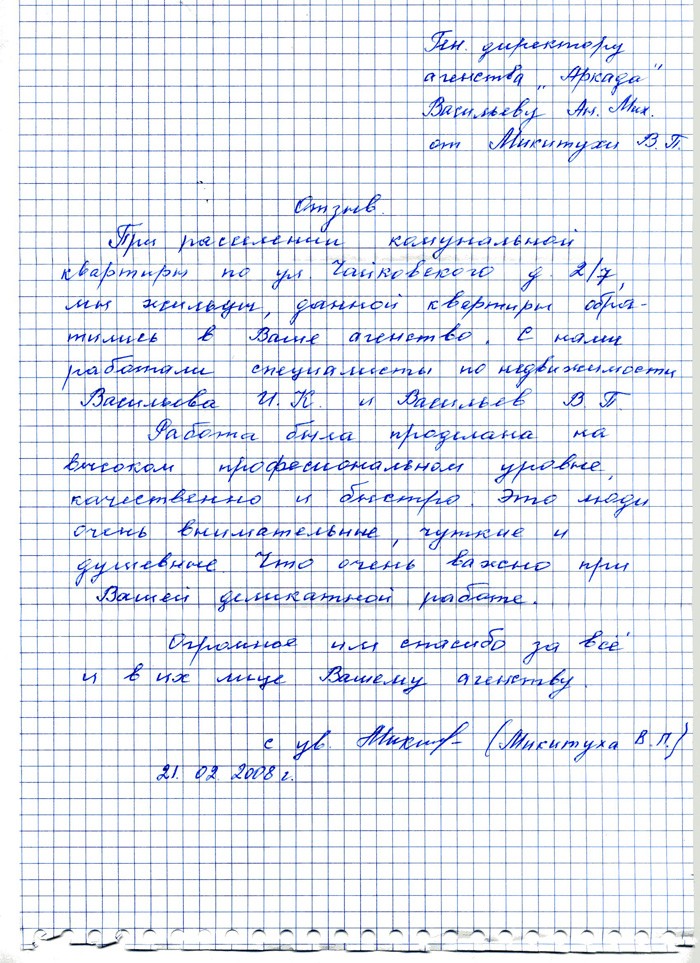 Ген. директору
агенства „Аркада"
Васильеву Ан. Мих.
от Микитухи В.П.
Отзыв.
При расселении комунальной
квартиры по ул. Чайковского д. 2/7,
мы жильцы, данной квартиры обра-
тились в Ваше агенство. С нами
работали специалисты по недвижимости
Васильева И.К. и Васильев В.П.
Работа была проделана на
высоком професиональном уровне,
качественно и быстро. Это люди
очень внимательные, чуткие и
душевные. Что очень важно при
Вашей деликатной работе.
Огромное им спасибо за всё
и в их лице Вашему агенству.
с ув. (Микитуха В.П.)
21. 02. 2008 г.